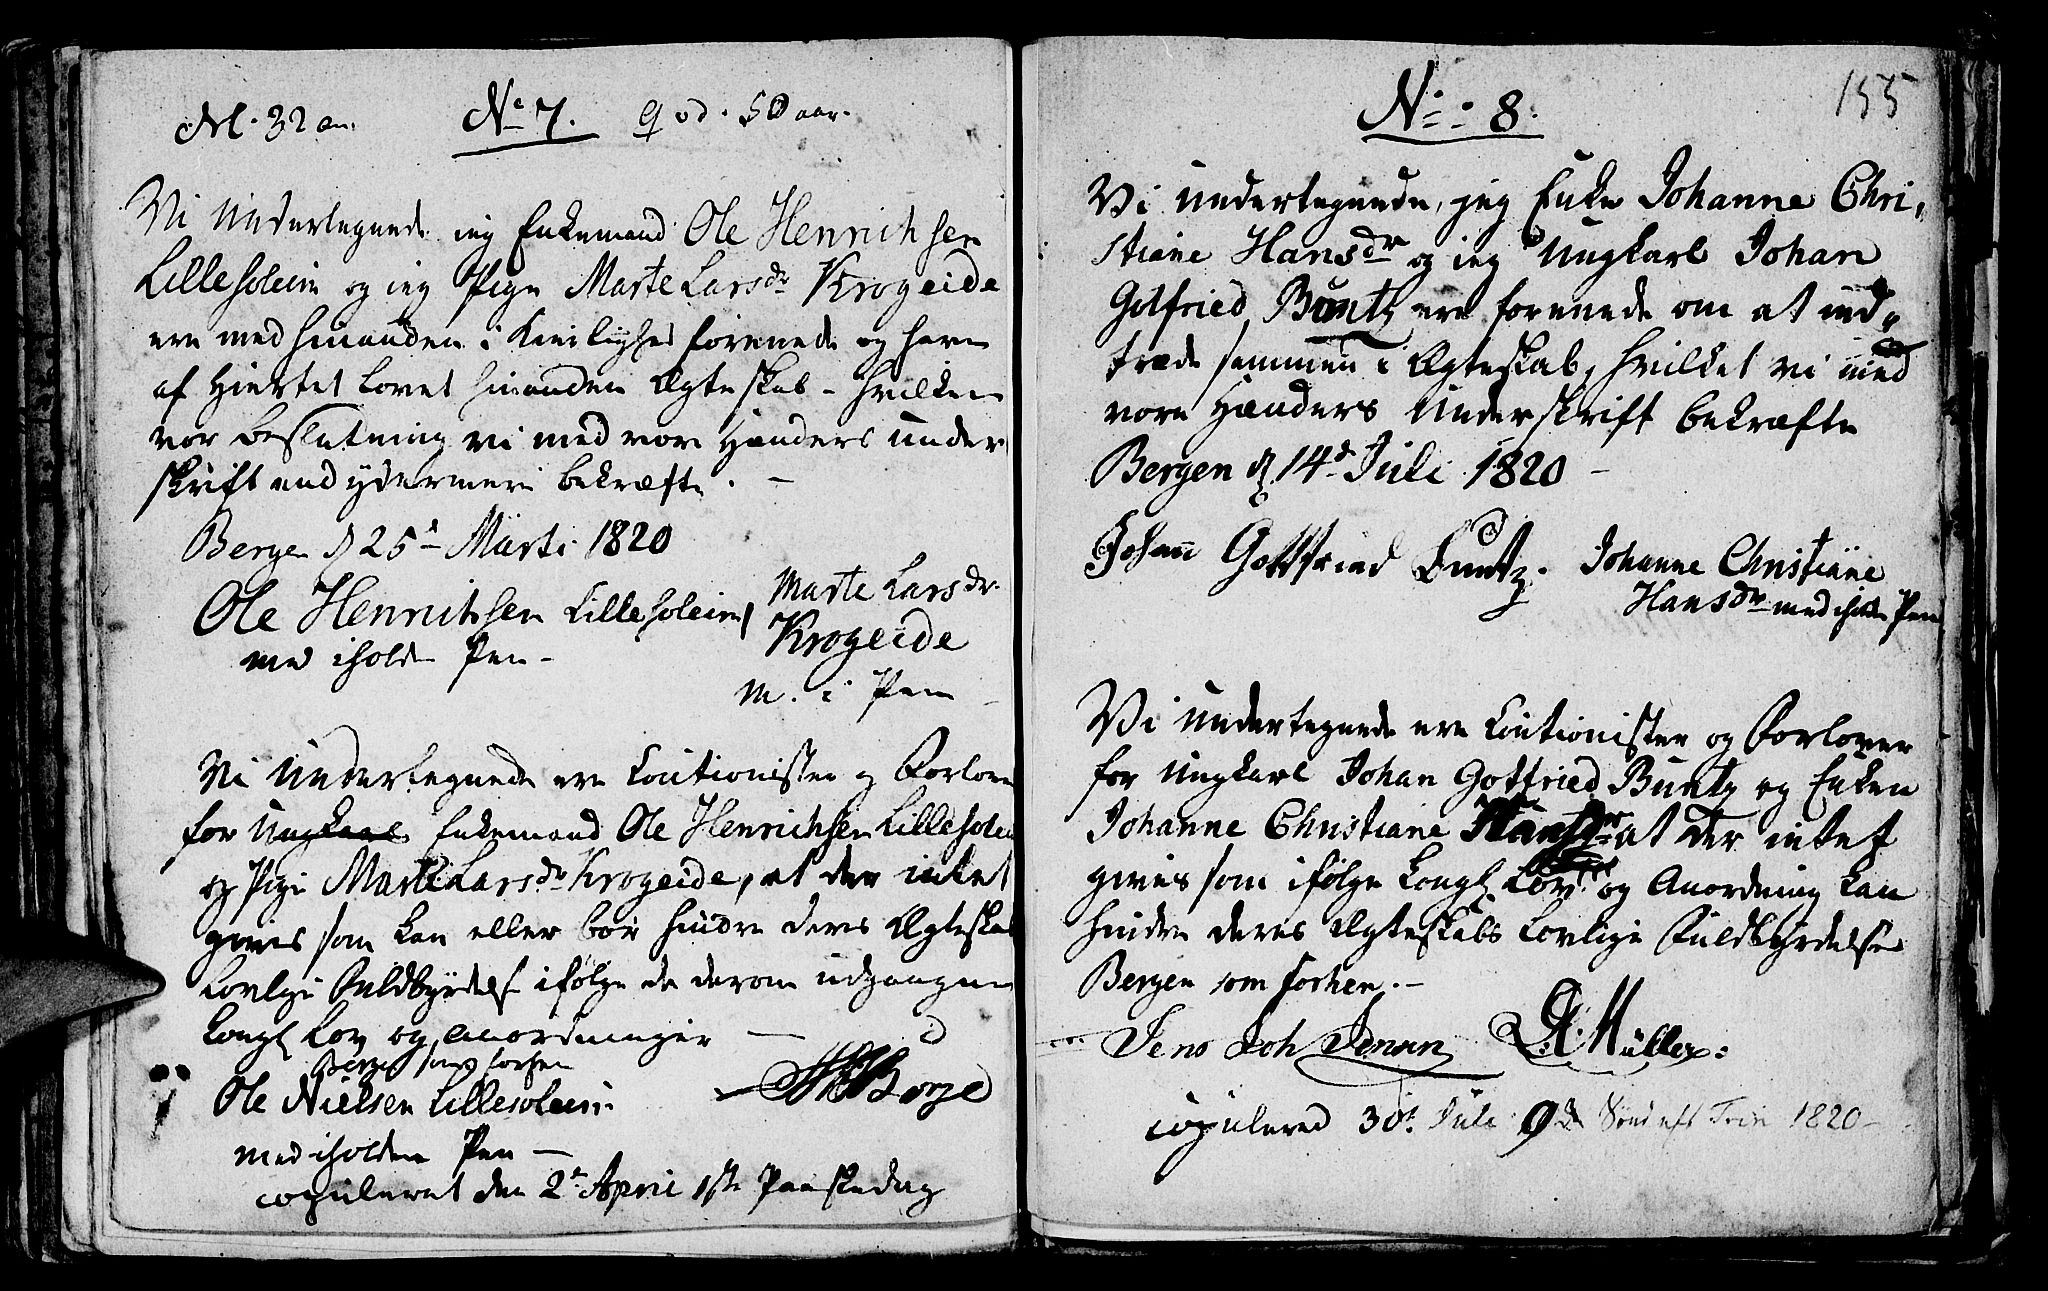 M. 32 an. No 7. Q od. 50 aar.
Vi Underlegnede jeg Enkemand Ole Henrichsen
Lillesolein og jeg Pige Marte Larsdr Krogeide
ere med hinanden i Kierlighed forenede og have
af Hiertet lovet hinanden Ægteskab - hvilken
vor beslutning vi med vore Hænders under
skrift end ydermere bekræfte. -
Bergen d 25d Marti 1820
Ole Henrichsen Lillesolein
med iholden Pen -
Marte Larsdr.
Krogeide
m. i Pen
Vi Underlegnede ere Cautionister og Forlovere
for Ungkarl Enkemand Ole Henrichsen Lillesolein
og Pige Marte Larsdr Krogeide, at der intet
gives som kan eller bør hindre deres Ægteskab
Lovlige Fuldbyrdelse ifølge de derom udgangne
Kongl Lov og Anordninger —
Bergen som forhen
Ole Nielsen Lillesolein
med iholden Pen —
Borge
copuleret den 2d April 1ste Paaskedag
155
No 8.
Vi undertegnede, jeg Enke Johanne Chri-
stiane Hansdr og jeg Ungkarl Johan
Gotfried Buntz ere forenede om at ind-
træde sammen i Ægteskab, hvilket vi med
vore Hænders Underskrift bekræfte
Bergen d 14d Juli 1820 -
Johann Gottfried Buntz. Johanne Christiane
Hansdr med iholden Pen
Vi undertegnede ere Cautionister og Forlover
for Ungkarl Johan Gotfried Buntz og Enken
Johanne Christiane Hansdr at der intet
gives som ifølge Kongl Lov og Anordning kan
hindre deres Ægteskabs Lovlige Fuldbyrdelse
Bergen som forhen. -
Jens Joh Jensen Müller:
copulered 30t Juli 9d Sønd eft Trin 1820 -